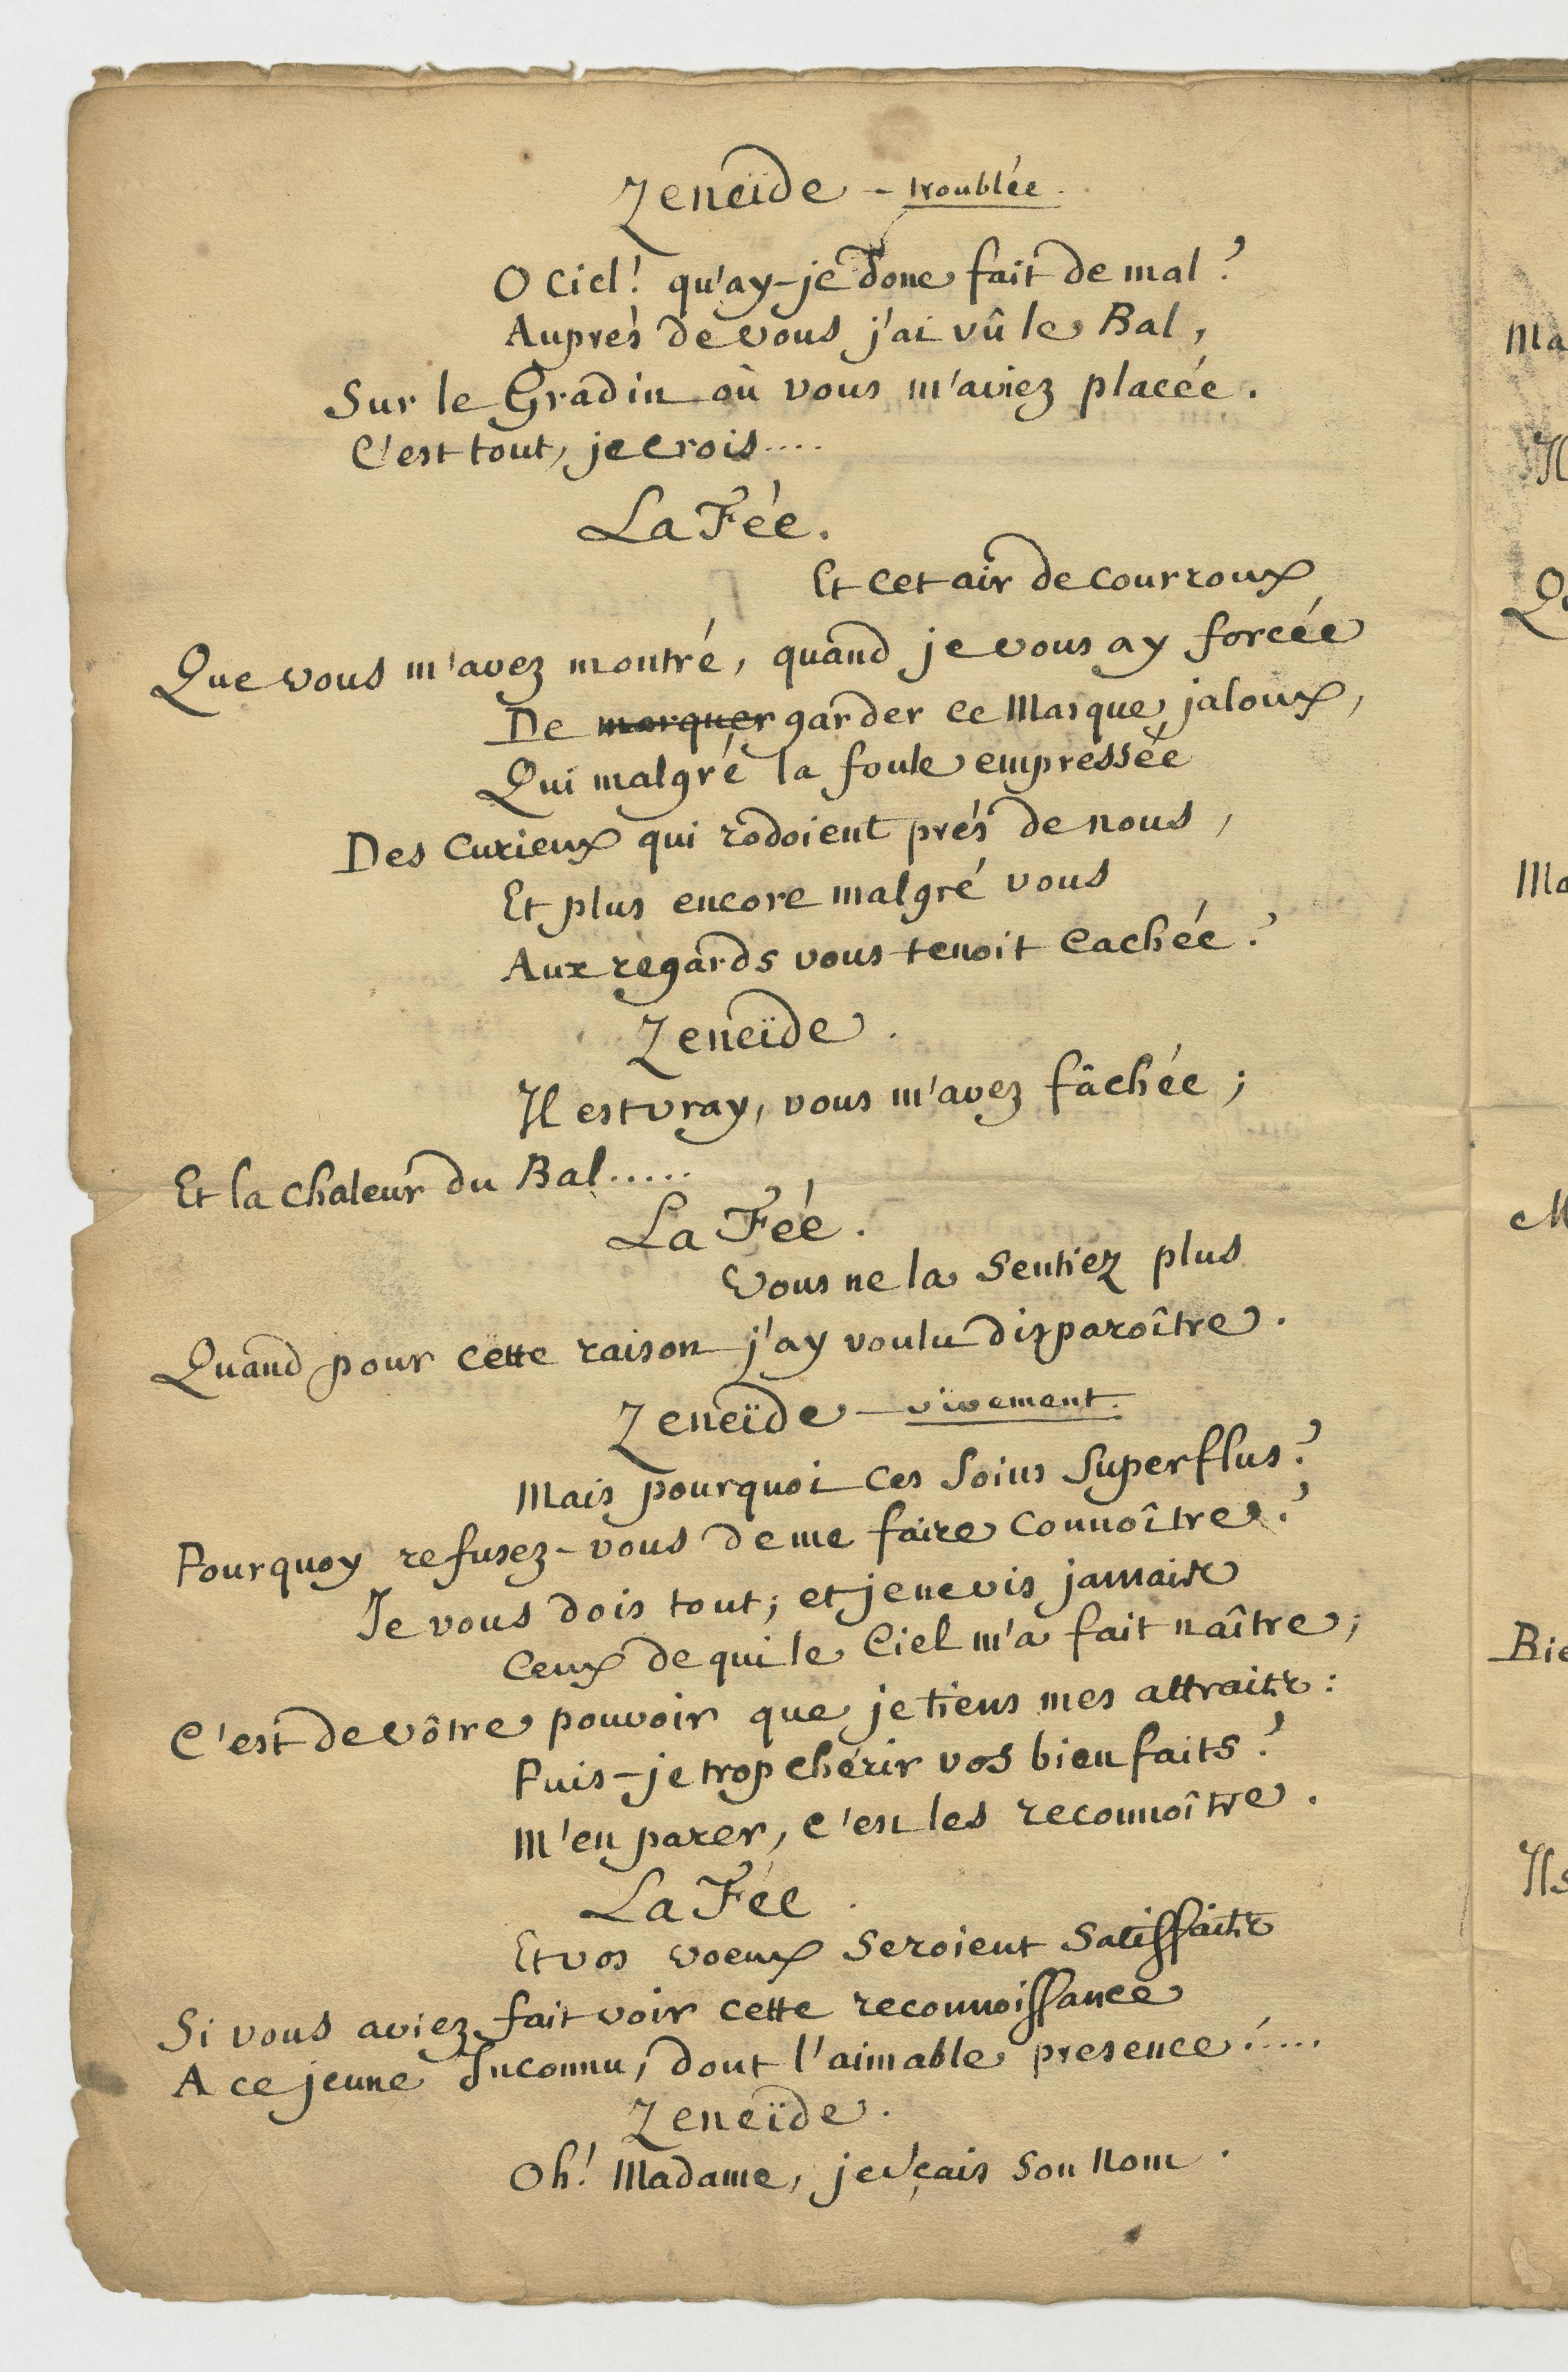 Zeneïde - troublée.
O Ciel! qu'ay-je donc fait de mal?
Auprés de vous j'ai vû le Bal,
Sur le Gradin où vous m'aviez placée.
C'est tout, je crois....
La Fée.
Et cet air de courroux
Que vous m'avez montré, quand je vous ay forcée
De marquer garder ce Masque jaloux,
Qui malgré la foule empressée
Des Curieux qui rodoient prés de nous,
Et plus encore malgré vous
Aux regards vous tenoit cachée?
Zeneïde.
Il est vray, vous m'avez fâchée;
Et la chaleur du Bal.....
La Fée.
Vous ne la sentiez plus
Quand pour cette raison j'ay voulu disparoître.
Zeneïde - vivement.
Mais pourquoi ces soins superflus?
Pourquoy refusez-vous de me faire connoître?
Je vous dois tout; et je ne vis jamais
Ceux de qui le Ciel m'a fait naître;
C'est de vôtre pouvoir que je tiens mes attraits:
Puis-je trop chérir vos bienfaits?
M'en parer, c'est les reconnoître.
La Fée.
Et vos voeux seroient satisfaits
Si vous aviez fait voir cette reconnoissance
A ce jeune Inconnu, dont l'aimable presence!....
Zeneïde.
Oh! Madame, je sçais son nom.
Ma
Il
Ma
M
Bie
Ils